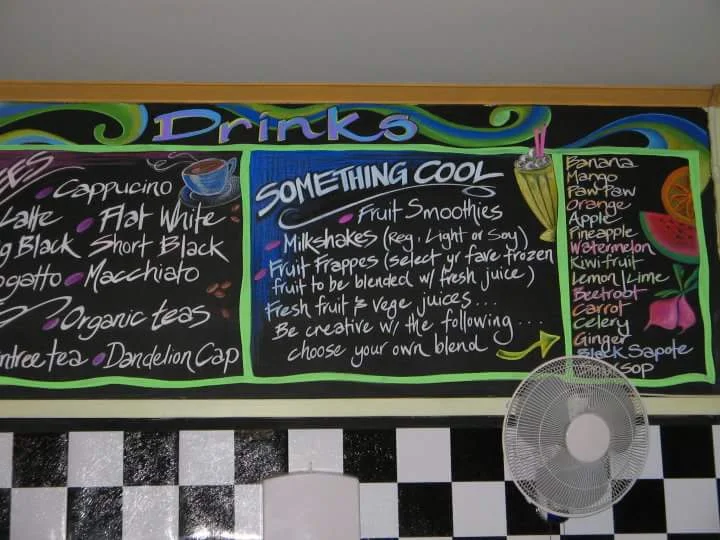 Drinks
Cappucino
Latte Flat White
Black Short Black
Macchiato
Organic teas
tea Dandelion Cap
SOMETHING COOL
Fruit Smoothies
Milkshakes (Reg, Light or Soy)
Fruit Frappes (select yr fave frozen
fruit to be blended w/ fresh juice)
Fresh fruit & vege juices...
Be creative w/ the following...
choose your own blend
Banana
Mango
Paw Paw
Orange
Apple
Pineapple
Watermelon
Kiwi fruit
Lemon/Lime
Beetroot
Carrot
Celery
Ginger
Black Sapote